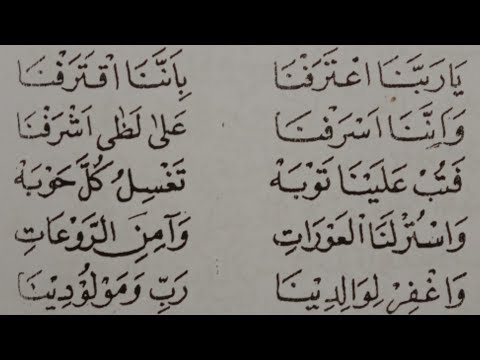 يَا رَبَّنَا اعْتَرَفْنَا بِاَنَّنَا اقْتَرَفْنَا
وَاِنَّنَا اَسْرَفْنَا عَلٰى لَظٰى اَشْرَفْنَا
فَتُبْ عَلَيْنَا تَوْبَهْ تَغْسِلُ كُلَّ حَوْبَهْ
وَاسْتُرْلَنَا الْعَوْرَاتِ وَآمِنِ الرَّوْعَاتِ
وَاغْفِرْ لِوَالِدِيْنَا رَبِّ وَمَوْلُوْدِيْنَا